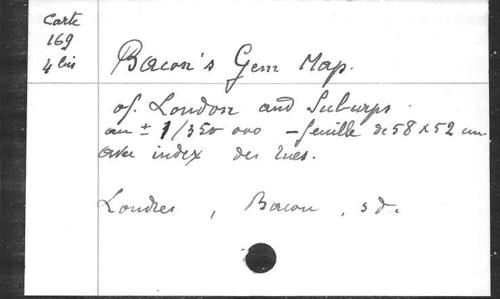 Carte
169
4 bis
Bacon's Gem Map.
of London and Suburps.
au ± 1/350 000 - feuille de 58 x 52 cm.
avec index des rues.
Londres, Bacon, s d.